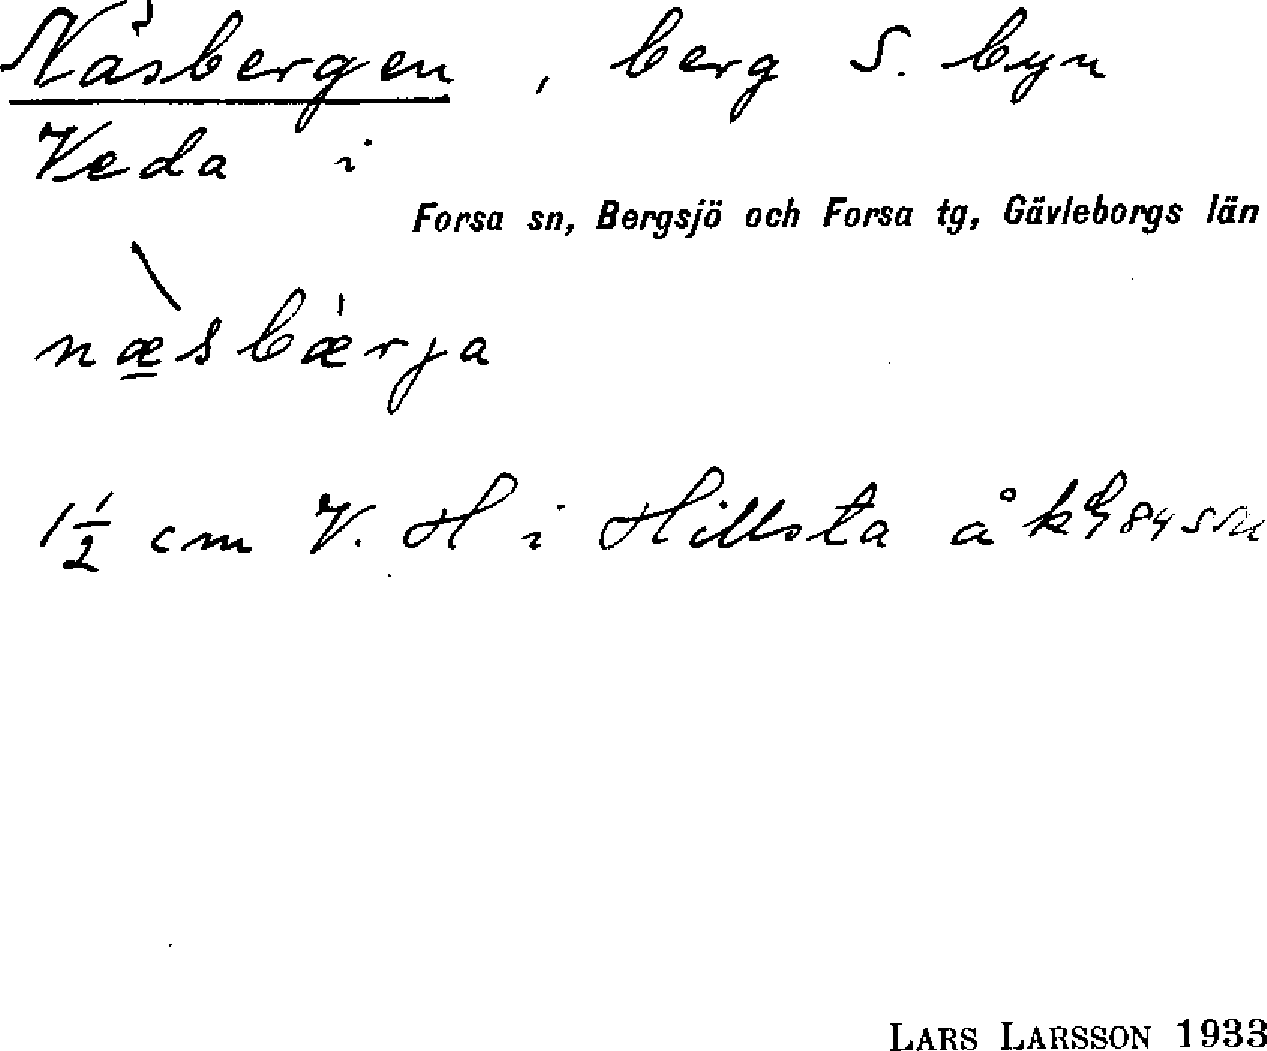 Näsbergen, berg S. byn
Veda i
Forsa sn, Bergsjö och Forsa tg, Gävleborgs län
næ̱̀sbæ̀rja
1½ cm V. H i Hillsta å k 84
LARS LARSSON 1933